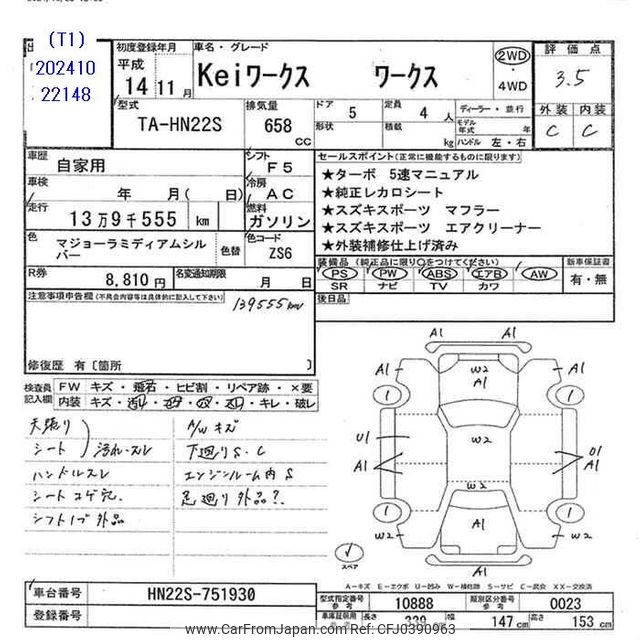 (T1)
202410
22148
初度登録年月
平成
14 11 月
車名・グレード
Keiワークス ワークス
2WD
・
4WD
評価点
3.5
型式
TA-HN22S
排気量
658
cc
ドア
5
形状
定員
4 人
積載
kg
ディーラー・並行
モデル
年式 年
ハンドル 左・右
外装 内装
C C
車歴
自家用
シフト
F5
車検
年 月 ( 日)
冷房
AC
走行
13万9千555 km
燃料
ガソリン
色
マジョーラミディアムシル
バー
色替
色コード
ZS6
セールスポイント(正常に機能するものに限ります)
★ターボ 5速マニュアル
★純正レカロシート
★スズキスポーツ マフラー
★スズキスポーツ エアクリーナー
★外装補修仕上げ済み
R券
8,810 円
名変通知期限
月 日
装備品(純正品に限り○をつけてください)
PS PW ABS エアB AW
SR ナビ TV カワ
新車保証書
有・無
後日品
注意事項申告欄(不具合内容等は具体的に記入して下さい)
139555km
修復歴 有〔箇所 〕
検査員
記入欄
FW キズ・飛石・ヒビ割・リペア跡・×要
内装 キズ・
・キレ・破レ
天張り
シート
汚れ・スレ
ハンドルスレ
シートコゲ穴.
シフトノブ外品
A/Wキズ
下廻りS.C
エンジンルーム内S
足廻り外品?.
A1 A1
A1 W2 A1 A1
1 1
U1 W2 U1
A1 A1
W2
1 1
W2 A1 W2
A1
スペア
A-キズ E-エクボ U-凹み W-補修跡 S-サビ C-腐食 XX-交換済
車台番号
HN22S-751930
登録番号
型式指定番号
参考
10888
類別区分番号
参考
0023
車庫証明用
参考
長さ
339
幅
147 cm
高さ
153 cm
www.CarFromJapan.com | Ref No. CFJ0390963